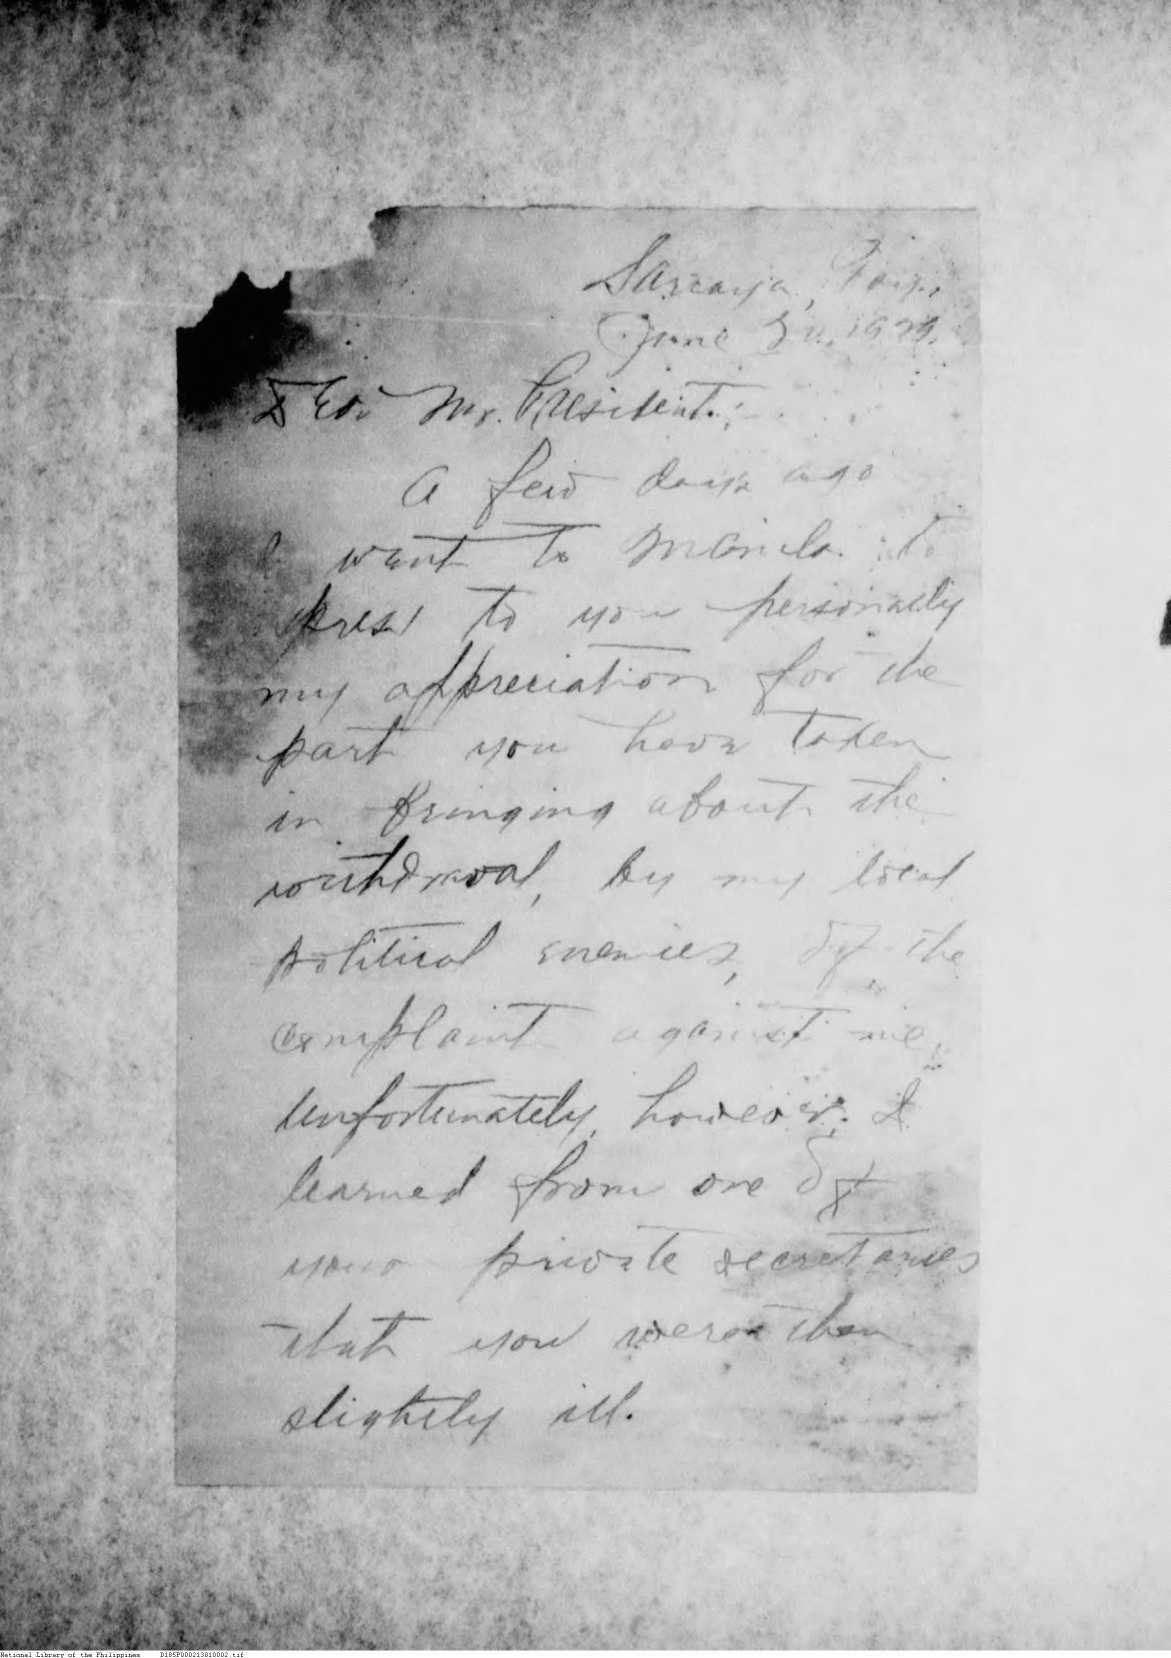 Sariaya, Tayabas
June 1929.
Dear Mr. President:
A few days ago
I went to Manila to
express to you personally
my appreciation for the
part you have taken
in bringing about the
withdrawal, by my local
political enemies, of the
complaint against me.
Unfortunately, however, I
learned from one of
your private secretaries
that you were then
slightly ill.
National Library of the Philippines D185P000213810002.tif